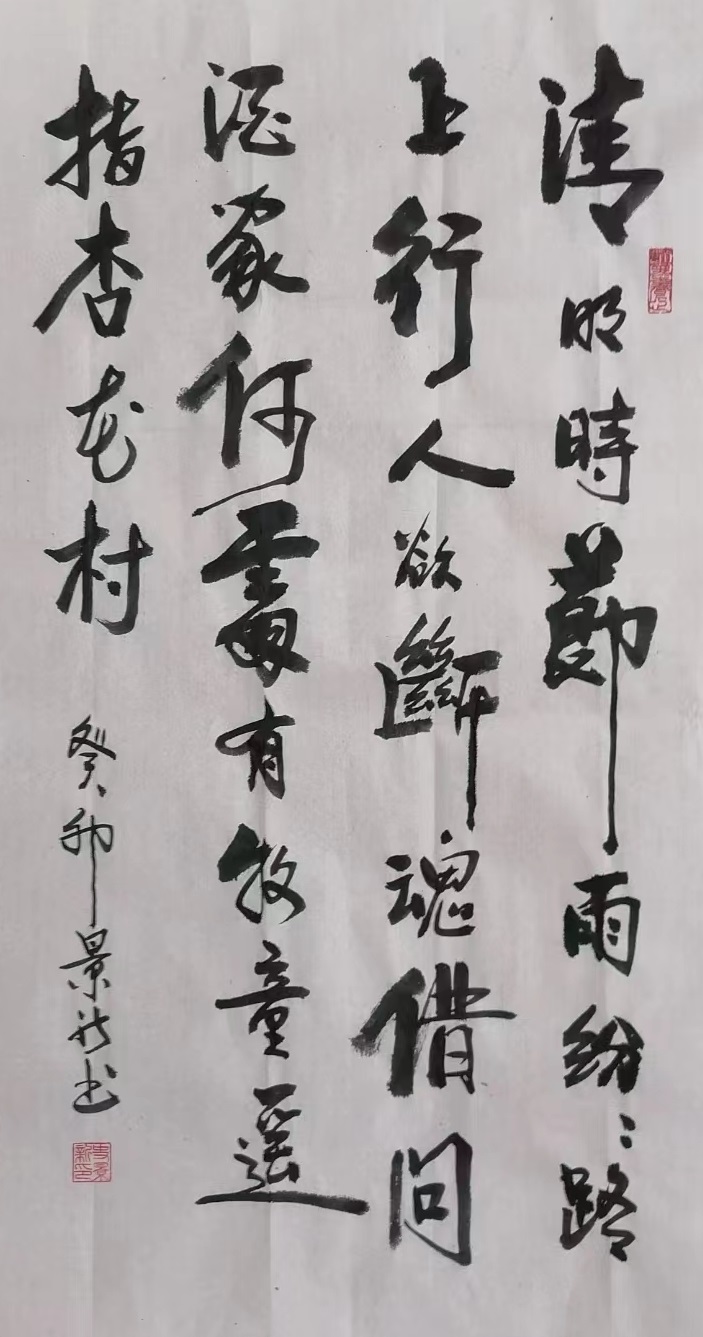 清明時節雨紛〻路
上行人欲斷魂借問
酒家何處有牧童遥
指杏花村
癸卯景新书